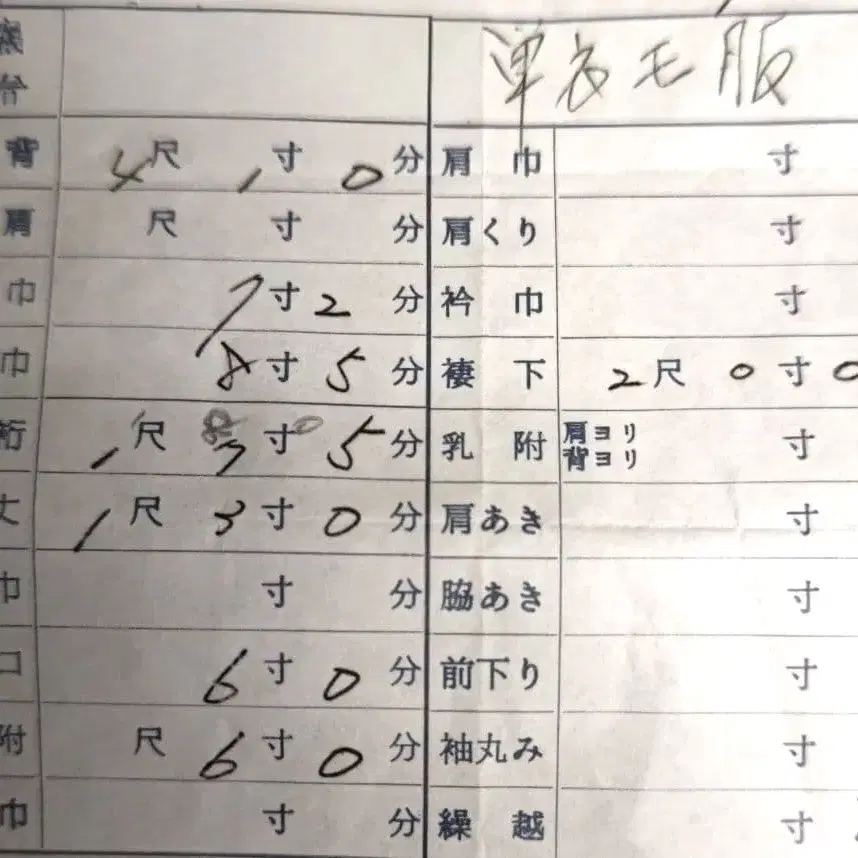 単衣 毛 服
背 4尺 1寸 0分 肩巾 寸
肩 尺 寸 分 肩くり 寸
巾 7寸 2分 衿巾 寸
巾 8寸 5分 褄下 2尺 0寸 0
裄 1尺 3寸 5分 乳附 肩ヨリ 背ヨリ 寸
丈 1尺 3寸 0分 肩あき 寸
巾 寸 分 脇あき 寸
口 6寸 0分 前下り 寸
附 尺 6寸 0分 袖丸み 寸
巾 寸 分 繰越 寸